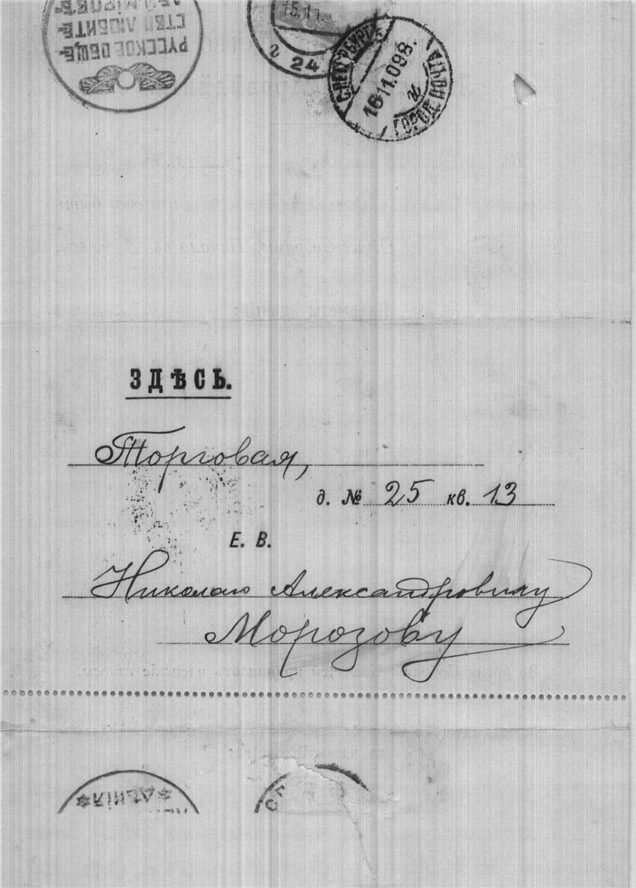 РУССКОЕ ОБЩЕ-
СТВО ЛЮБИТЕ-
15.11
г 24
С.ПЕТЕРБУРГЪ
16.11.09 8.
ГОРОД. ПОЧТА
ЗДѢСЬ.
Торговая,
д. № 25 кв. 13
Е. В.
Николаю Александровичу
Морозову